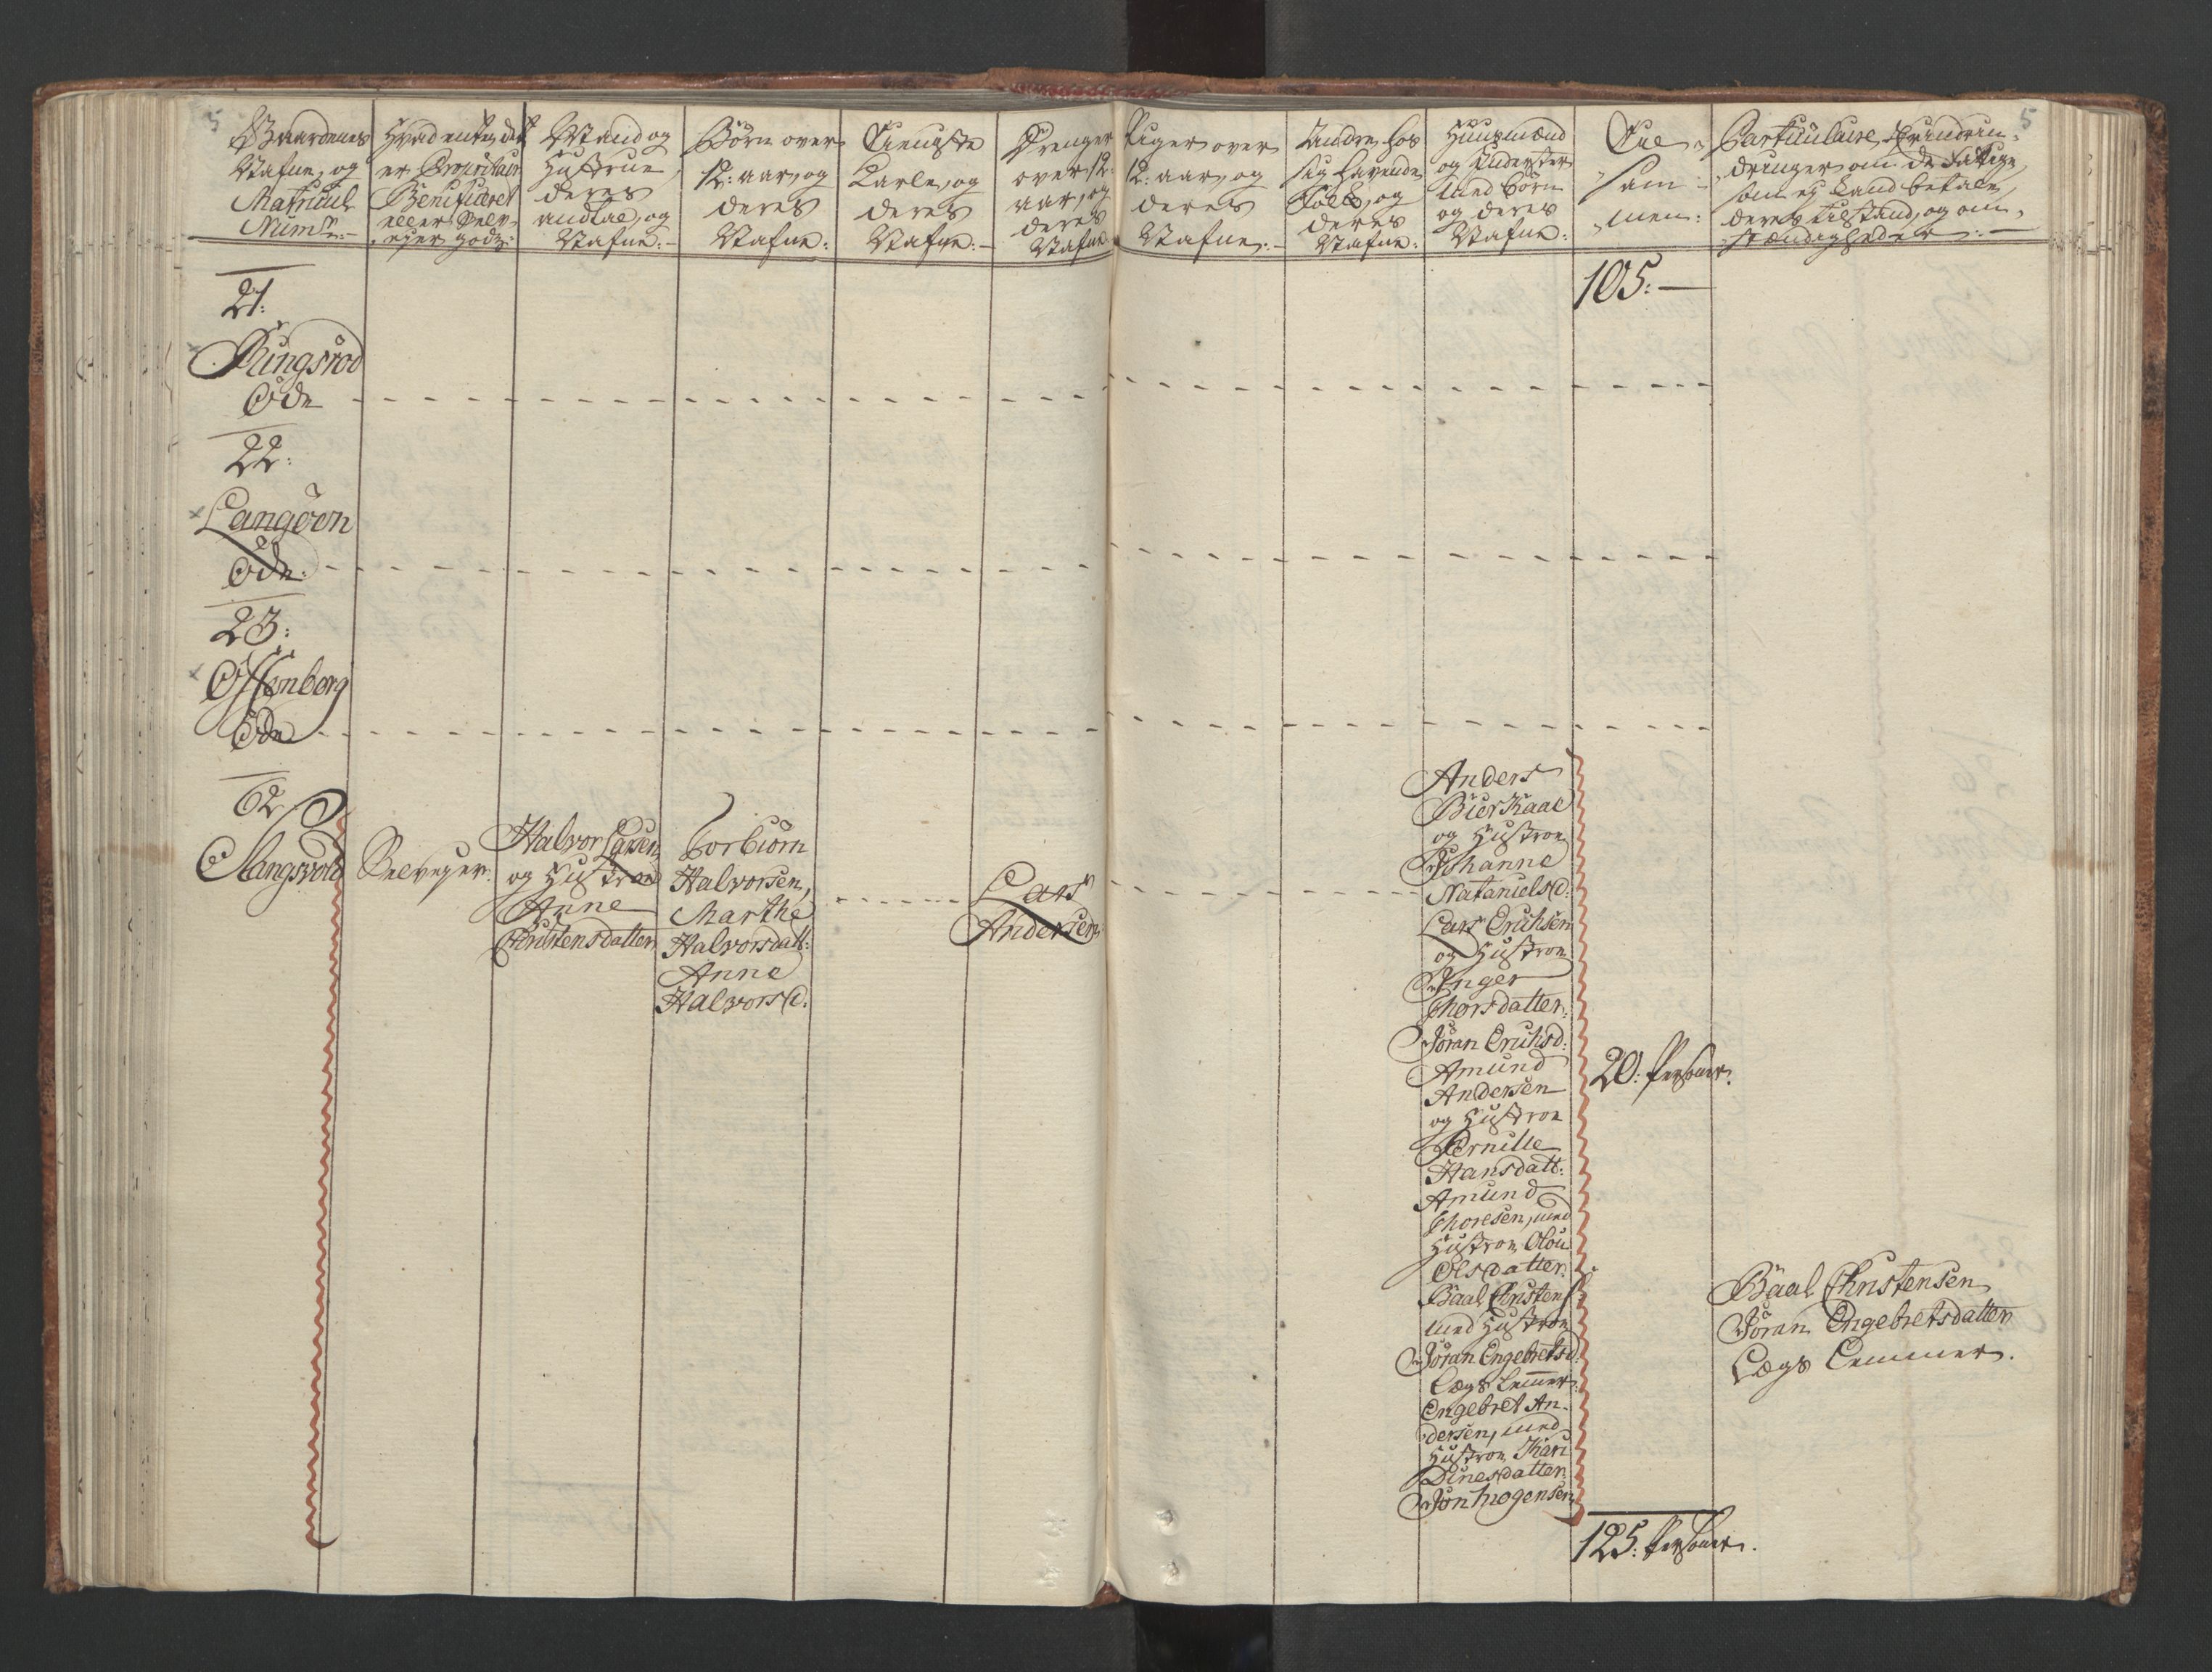 5
Gaardenes
Nafne, og
Matricul
Num̅:
Hvad enten det
er Proprietair
Benificeret
eller Selv-
ejer godz:
Mand og
Hustrue,
deres
andtal, og
Nafne:
Börn over
12: aar, og
deres
Nafne:
Tieneste
Karle, og
deres
Nafne:
Drenger
over 12:
aar, og
deres
Nafne
Piger over
12: aar, og
deres
Nafne:
Andre hos
sig havende
Folk, og
deres
Nafne:
Huusmænd
og Inderster
med börn
og deres
Nafne:
Til-
sam-
men:
Particulaire Erindrin-
dringer om de Fattige,
som ej kand betale,
deres tilstand, og om-
stændigheder:
5
105:
21:
Ringsröd
Öde
22:
Langöen
Öde:
23:
Öde
62
Slangsvold
Selvejer:
Halvor Larsen
og Hustroe
Anne
Christensdatter
Torbiörn
Halvorsen,
Marthe
Halvorsdatt:
Anne
Halvorsd:
Lars
Andersen
Anders
Bierkaal
og Hustroe
Johanne
Natanielsd:
Lars Erichsen
og Hustroe
Inger
Thorsdatter:
Jöran Erichsd:
Amund
Andersen
og Hustroe
Pernille
Hansdatt:
Amund
Thoresen, med
Hustroe Olou
Olsdatter:
Baal Christens:
med Hustroe
Jöran Engebretsd:
Lægs Lemmer:
Engebret An-
dersen, med
Hustroe Kari
Dinesdatter:
Jon Mogensen
20: Persouner.
Baal Christensen
Jöran Engebretsdatter
Lægs Lemmer.
125: Persouner.